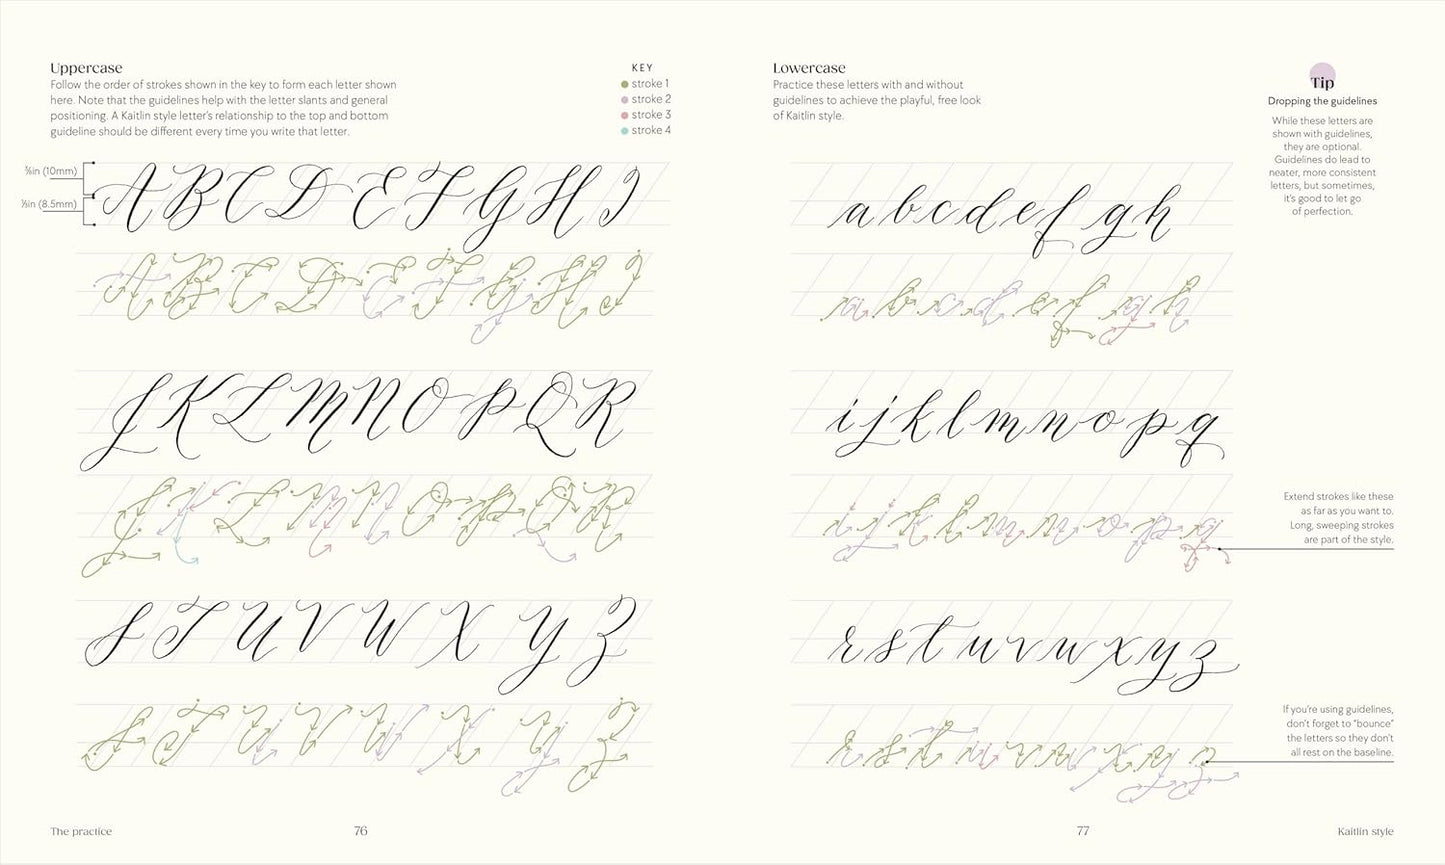 Uppercase
Follow the order of strokes shown in the key to form each letter shown
here. Note that the guidelines help with the letter slants and general
positioning. A Kaitlin style letter's relationship to the top and bottom
guideline should be different every time you write that letter.
KEY
stroke 1
stroke 2
stroke 3
stroke 4
⅜in (10mm)
⅓in (8.5mm)
A B C D E F G H I
J K L M N O P Q R
S T U V W X Y Z
The practice
76
Lowercase
Practice these letters with and without
guidelines to achieve the playful, free look
of Kaitlin style.
Tip
Dropping the guidelines
While these letters are
shown with guidelines,
they are optional.
Guidelines do lead to
neater, more consistent
letters, but sometimes,
it's good to let go
of perfection.
a b c d e f g h
i j k l m n o p q
Extend strokes like these
as far as you want to.
Long, sweeping strokes
are part of the style.
r s t u v w x y z
If you're using guidelines,
don't forget to "bounce"
the letters so they don't
all rest on the baseline.
77
Kaitlin style